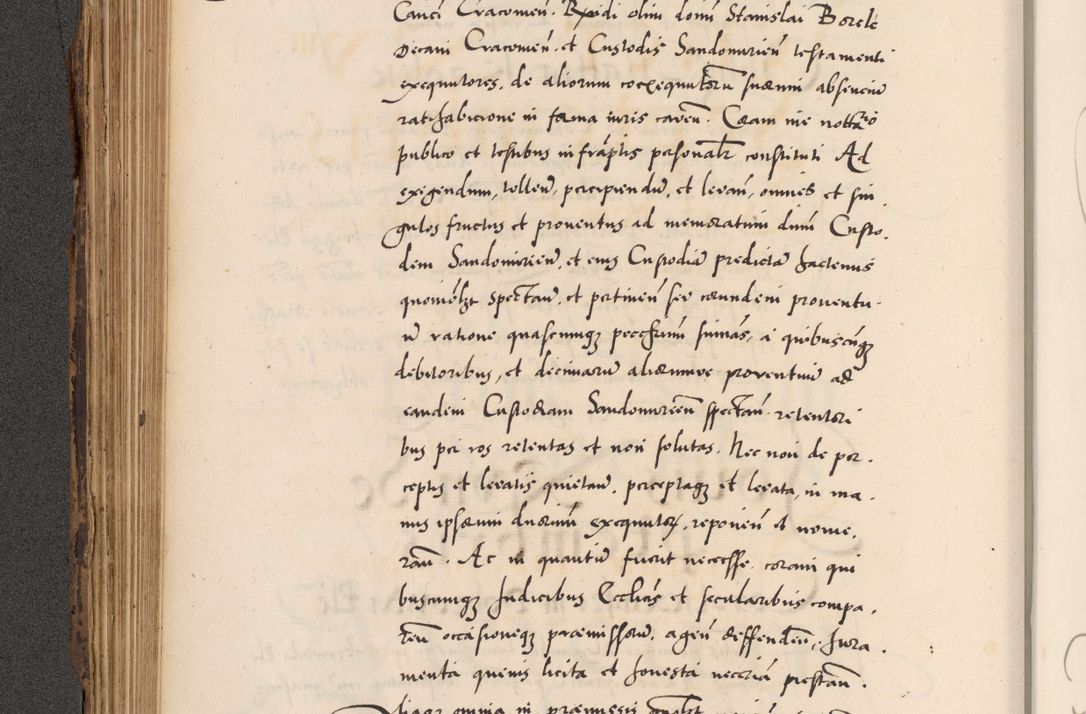 Cauci Cracouien. Rndi olim domini Stanislai Borek
Decani Cracouien. et Custodis Sandomirien testamenti
exequutores, de aliorum coexequutorum suorum absencium
ratihabicione in forma iuris caven. Coram me nottario
publico et testibus infrascriptis personaliter constituti Ad
exigendum, tollen, percipiendum, et levan, omnes et sin
gulos fructus et proventus ad memoratum dnum Custo,
dem Sandomirien, et eius Custodiam predictam hactenus
quomolzt spectan, et pertinen seu eorundem proventu
um ratione quascunqz pecuniarum summas, a quibuscunqz
debitoribus, et decimarum aliorumve proventuum ad
eandem Custodiam Sandomirien spectan. retentori
bus per eos retentas et non solutas. Nec non de per,
ceptis et levatis quietan, perceptaqz et levata in ma,
nus ipsorum duorum exequutorum, reponen et nume,
ran. Ac in quantum fuerit necesse, coram qui
buscunqz Iudicibus Ecclicis et secularibus compa,
ren occasioneqz praemissorum, agen deffenden, Iura,
menta quevis licita et honesta neccria prestan.
aliaqz omnia in praemissis